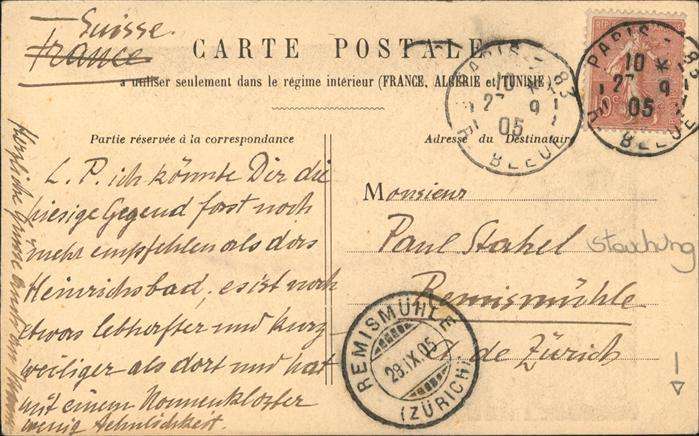 Suisse.
France
CARTE POSTALE
à utiliser seulement dans le régime intérieur (FRANCE, ALGÉRIE et TUNISIE)
PARIS 83
10
27 9
05
R. BLEUE
PARIS 83
10
27 9
05
R. BLEUE
10c
Partie réservée à la correspondance
L. P. ich könnte Dir die
hiesige Gegend fast noch
mehr empfehlen als das
Heinrichsbad, es ist noch
etwas lebhafter und kurz
weiliger als dort und hat
mit einem Nonnenkloster
wenig Aehnlichkeit.
Herzliche Grüsse
Adresse du Destinataire
Monsieur
Paul Stahel
Remismühle
Ct. de Zürich
REMISMÜHLE
28.IX.05
(ZÜRICH)